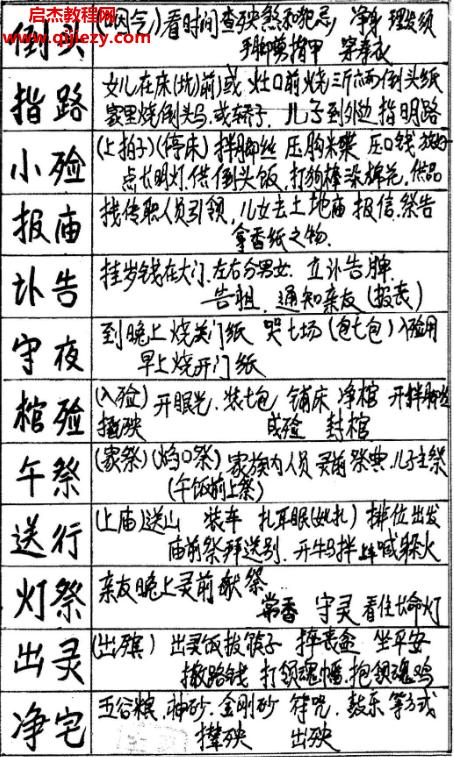 启杰教程网
www.qijiezy.com
倒头
(因今)看时间查殃煞和犯忌 净身 理发须
指甲 穿寿衣
指路
女儿在床(炕)前或灶口前烧三斤六两倒头纸
家里烧倒头马或轿子. 儿子到外边指明路
小殓
(上拍子)(停床) 拌脚丝 压胸米 压口钱 放好
点长明灯. 供倒头饭, 打狗棒 棉花. 供品
报庙
找传职人员引领, 儿女去土地庙 报信. 祭告
拿香纸之物.
讣告
挂岁钱在大门. 左右分男女. 立讣告牌.
告祖. 通知亲友(报丧)
守夜
到晚上烧关门纸 哭七场(包七包)入殓用
早上烧开门纸
棺殓
(入殓) 开眼光. 装七包 铺床 净棺 开拌脚丝
殃 成殓 封棺
午祭
(家祭)(焰口祭) 家族内人员灵前祭典. 儿子主祭
(午饭前上祭)
送行
(上庙)送山 装车 扎耳眼(女扎) 排位出发
庙前祭拜送别. 开牛马拌 喊躲火
灯祭
亲友晚上灵前献祭
常香 守灵 看住长命灯
出灵
(出殡) 出灵饭拔筷子 摔丧盆 坐平安
撒路钱 打领魂幡. 抱领魂鸡
净宅
五谷粮. 神砂. 金刚砂 符咒. 鼓乐等方式
撵殃 出殃